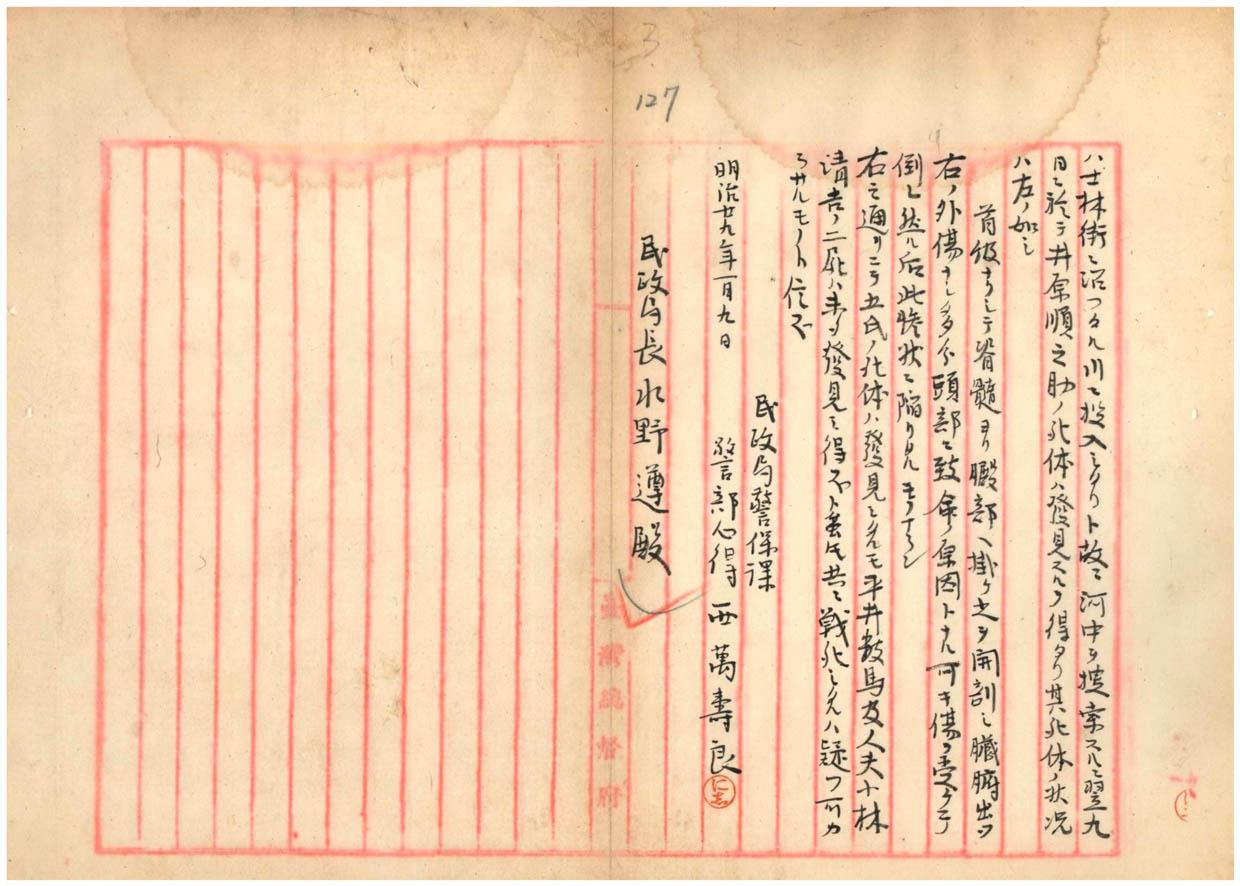 3
127
ハ士林街ニ沿ツタル川ニ投入シタリト故ニ河中ヲ捜索スルニ翌九
日ニ於テ井原順之助ノ死体ハ發見スルヲ得タリ其死体ノ状况
ハ左ノ如シ
首級ナクシテ脊髄ヨリ臀部ヘ掛ケ之ヲ開割シ臓腑出ツ
右ノ外傷ナシ多分頭部ニ致命ノ原因トナル可キ傷ヲ受ケテ
倒レ然ル后此惨状ニ陥リタルモノナラン
右之通リニテ五氏ノ死体ハ發見シタルモ平井数馬及人夫小林
清吉ノ二屍ハ未タ發見シ得ス卜虽モ共ニ戦死シタルハ疑フ可カ
ラサルモノト信ス
民政局警保課
明治廿九年一月九日 警部心得 西萬壽良
民政局長水野遵殿
臺灣總督府